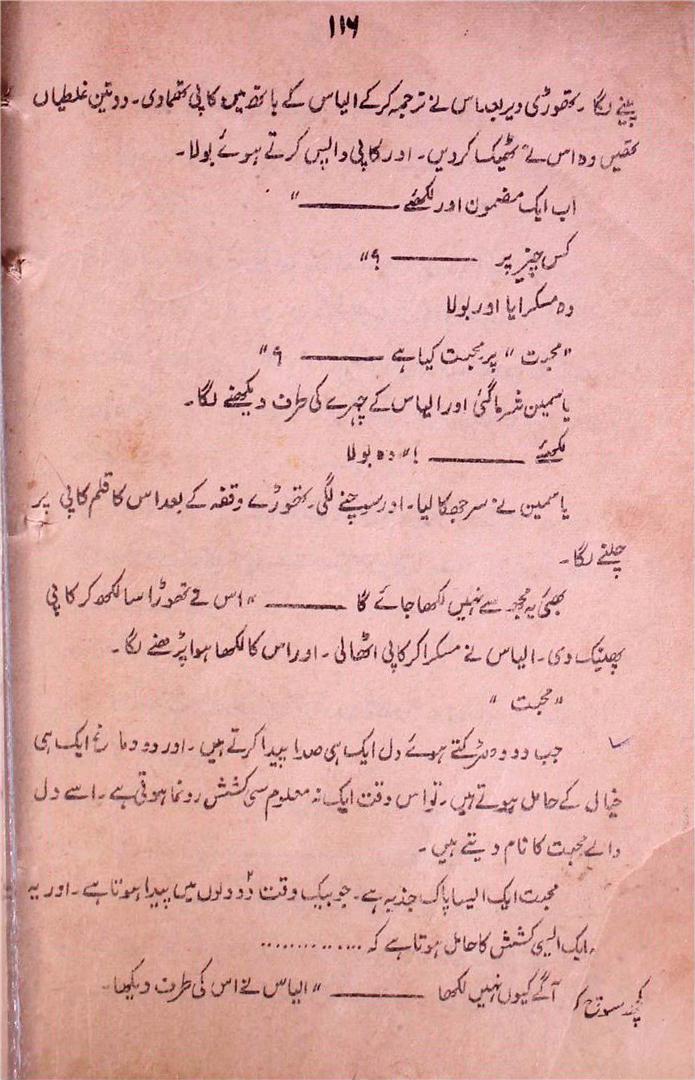 ۱۱۶
پینے لگا۔ تھوڑی دیر بعد اس نے ترجمہ کر کے الیاس کے ہاتھ میں کاپی تھما دی۔ دو تین غلطیاں
تھیں وہ اس نے ٹھیک کر دیں۔ اور کاپی واپس کرتے ہوئے بولا۔
اب ایک مضمون اور لکھئے ——— "
کس چیز پر ——— ؟"
وہ مسکرایا اور بولا
"محبت" پر محبت کیا ہے ——— ؟"
یاسمین شرما گئی اور الیاس کے چہرے کی طرف دیکھنے لگا۔
لکھئے ——— !" وہ بولا
یاسمین نے سر جھکا لیا۔ اور سوچنے لگی۔ تھوڑے وقفہ کے بعد اس کا قلم کاپی پر
چلنے لگا۔
بھئی یہ مجھ سے نہیں لکھا جائے گا ——— " اس نے تھوڑا سا لکھ کر کاپی
پھینک دی۔ الیاس نے مسکرا کر کاپی اٹھالی۔ اور اس کا لکھا ہوا پڑھنے لگا۔
"محبت"
جب دو دھڑکتے ہوئے دل ایک ہی صدا پیدا کرتے ہیں۔ اور دو دماغ ایک ہی
خیال کے حامل ہوتے ہیں۔ تو اس وقت ایک نہ معلوم سی کشش رونما ہوتی ہے۔ اسے دل
والے محبت کا نام دیتے ہیں۔
محبت ایک ایسا پاک جذبہ ہے۔ جو بیک وقت دو دلوں میں پیدا ہوتا ہے۔ اور یہ
ایک ایسی کشش کا حامل ہوتا ہے کہ ..............
کچھ سوچ کر آگے کیوں نہیں لکھا ——— " الیاس نے اس کی طرف دیکھا۔